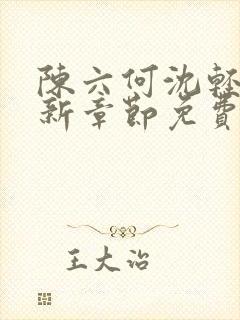 陳六何沈輕
新章節免費
王大治